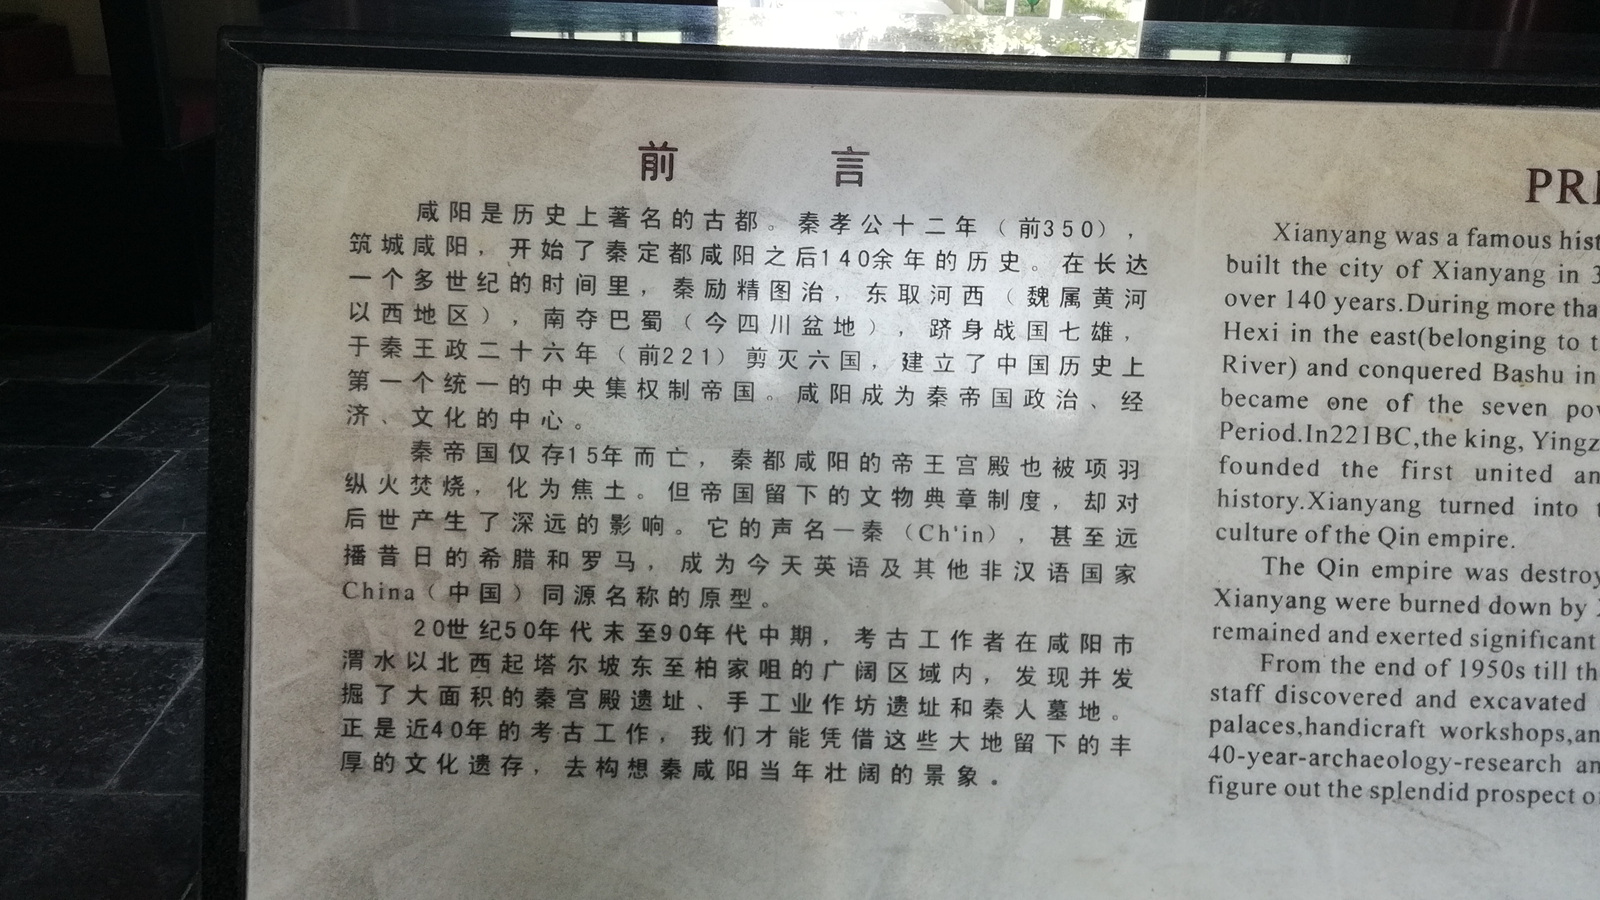 前 言
咸阳是历史上著名的古都。秦孝公十二年（前350），
筑城咸阳，开始了秦定都咸阳之后140余年的历史。在长达
一个多世纪的时间里，秦励精图治，东取河西（魏属黄河
以西地区），南夺巴蜀（今四川盆地），跻身战国七雄，
于秦王政二十六年（前221）剪灭六国，建立了中国历史上
第一个统一的中央集权制帝国。咸阳成为秦帝国政治、经
济、文化的中心。
秦帝国仅存15年而亡，秦都咸阳的帝王宫殿也被项羽
纵火焚烧，化为焦土。但帝国留下的文物典章制度，却对
后世产生了深远的影响。它的声名一秦（Ch'in），甚至远
播昔日的希腊和罗马，成为今天英语及其他非汉语国家
China（中国）同源名称的原型。
20世纪50年代末至90年代中期，考古工作者在咸阳市
渭水以北西起塔尔坡东至柏家咀的广阔区域内，发现并发
掘了大面积的秦宫殿遗址、手工业作坊遗址和秦人墓地。
正是近40年的考古工作，我们才能凭借这些大地留下的丰
厚的文化遗存，去构想秦咸阳当年壮阔的景象。
Xianyang was a famous
built the city of Xianyang in
over 140 years.During more
Hexi in the east(belonging to
River) and conquered Bashu in
became one of the seven
Period.In221BC,the king,
founded the first united
history.Xianyang turned into
culture of the Qin empire.
The Qin empire was
Xianyang were burned down by
remained and exerted significant
From the end of 1950s till
staff discovered and excavated
palaces,handicraft workshops,
40-year-archaeology-research
figure out the splendid prospect